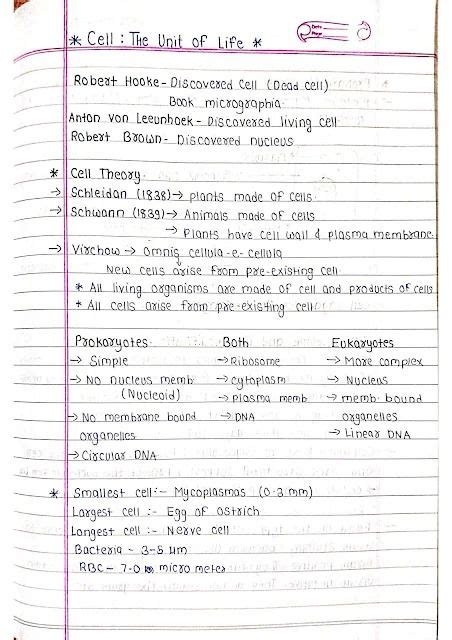 * Cell : The Unit of Life *
Date
Page
Robert Hooke - Discovered Cell (Dead cell)
Book micrographia.
Anton von Leeunhoek - Discovered living cell
Robert Brown - Discovered nucleus
* Cell Theory
→ Schleidan (1838) → plants made of cells
→ Schwann (1839) → Animals made of cells
→ Plants have cell wall & plasma membrane
→ Virchow → Omnis cellula-e-cellula
New cells arise from pre-existing cell
* All living organisms are made of cell and products of cells
* All cells arise from pre-existing cell
Prokaryotes Both Eukaryotes
→ Simple → Ribosome → More complex
→ No nucleus memb → cytoplasm → Nucleus
(Nucleoid) → plasma memb → memb. bound
→ No membrane bound → DNA organelles
organelles → Linear DNA
→ Circular DNA
* Smallest cell :- Mycoplasmas (0.3 mm)
Largest cell :- Egg of Ostrich
Longest cell :- Nerve cell
Bacteria - 3-5 μm
RBC - 7.0 micro meter